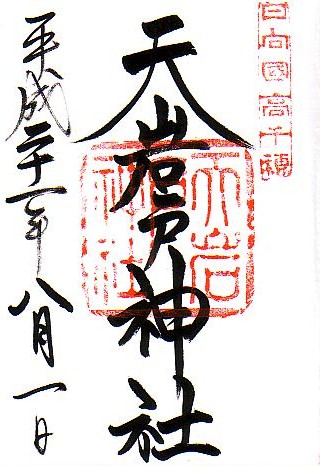 日向國高千穂
天岩戸神社
天岩神社
平成二十一年八月一日